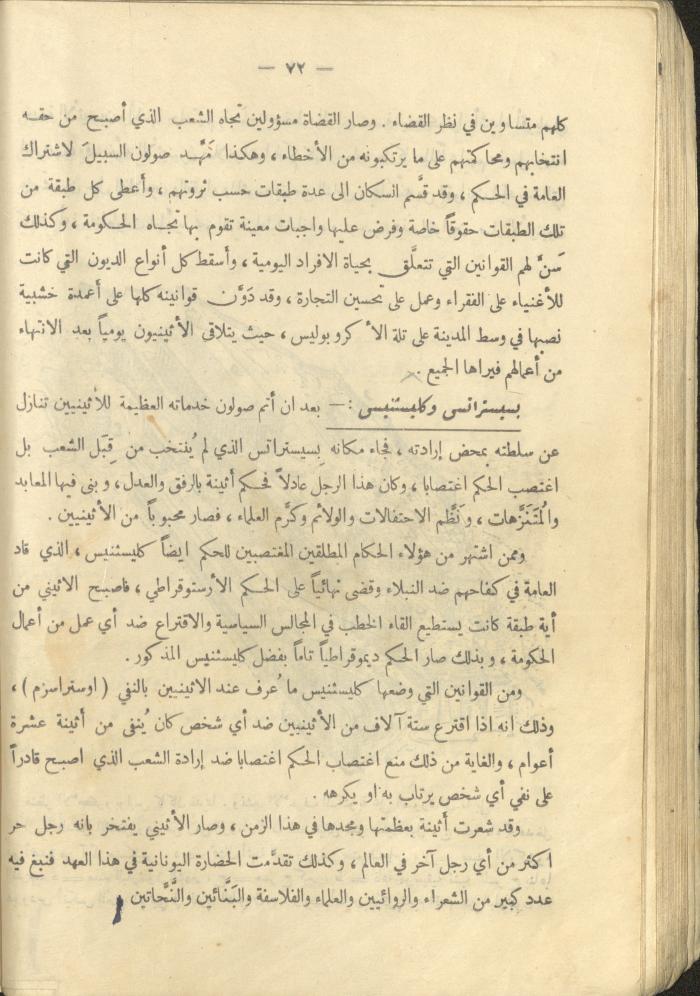 — ٧٢ —
كلهم متساوين في نظر القضاء . وصار القضاة مسؤولين تجاه الشعب الذي أصبح من حقه
انتخابهم ومحاكمتهم على ما يرتكبونه من الأخطاء ، وهكذا مَهَّد صولون السبيلَ لاشتراك
العامة في الحكم ، وقد قسَّم السكان الى عدة طبقات حسب ثروتهم ، وأعطى كل طبقة من
تلك الطبقات حقوقاً خاصة وفرض عليها واجبات معينة تقوم بها تجاه الحكومة ، وكذلك
سَنَّ لهم القوانين التي تتعلَّق بحياة الافراد اليومية ، وأسقط كل أنواع الديون التي كانت
للأغنياء على الفقراء وعمل على تحسين التجارة ، وقد دَوَّن قوانينه كلها على أعمدة خشبية
نصبها في وسط المدينة على تلة الأكروبوليس ، حيث يتلاقى الأثينيون يومياً بعد الانتهاء
من أعمالهم فيراها الجميع .
بسيستراتس وكليستنيس :— بعد ان أتم صولون خدماته العظيمة للأثينيين تنازل
عن سلطته بمحض إرادته ، فجاء مكانه بِسيستراتس الذي لم يُنتخب من قِبَل الشعب بل
اغتصب الحكم اغتصابا ، وكان هذا الرجل عادلاً فحكم أثينة بالرفق والعدل ، وبنى فيها المعابد
والمُتَنَزَّهات ، ونَظَّم الاحتفالات والولائم وكرَّم العلماء ، فصار محبوباً من الأثينيين .
وممن اشتهر من هؤلاء الحكام المطلقين المغتصبين للحكم ايضاً كليستنيس ، الذي قاد
العامة في كفاحهم ضد النبلاء وقضى نهائياً على الحكم الأرستوقراطي ، فاصبح الاثيني من
أية طبقة كانت يستطيع القاء الخطب في المجالس السياسية والاقتراع ضد أي عمل من أعمال
الحكومة ، وبذلك صار الحكم ديموقراطياً تاماً بفضل كليستنيس المذكور .
ومن القوانين التي وضعها كليستنيس ما عُرف عند الاثينيين بالنفي ( اوستراسزم ) ،
وذلك انه اذا اقترع ستة آلاف من الأثينيين ضد أي شخص كان يُنفى من أثينة عشرة
أعوام ، والغاية من ذلك منع اغتصاب الحكم اغتصابا ضد إرادة الشعب الذي اصبح قادراً
على نفي أي شخص يرتاب به او يكرهه .
وقد شعرت أثينة بعظمتها ومجدها في هذا الزمن ، وصار الأثيني يفتخر بانه رجل حر
اكثر من أي رجل آخر في العالم ، وكذلك تقدَّمت الحضارة اليونانية في هذا العهد فنبغ فيه
عدد كبير من الشعراء والروائيين والعلماء والفلاسفة والبَنَّائين والنَّحَّاتين